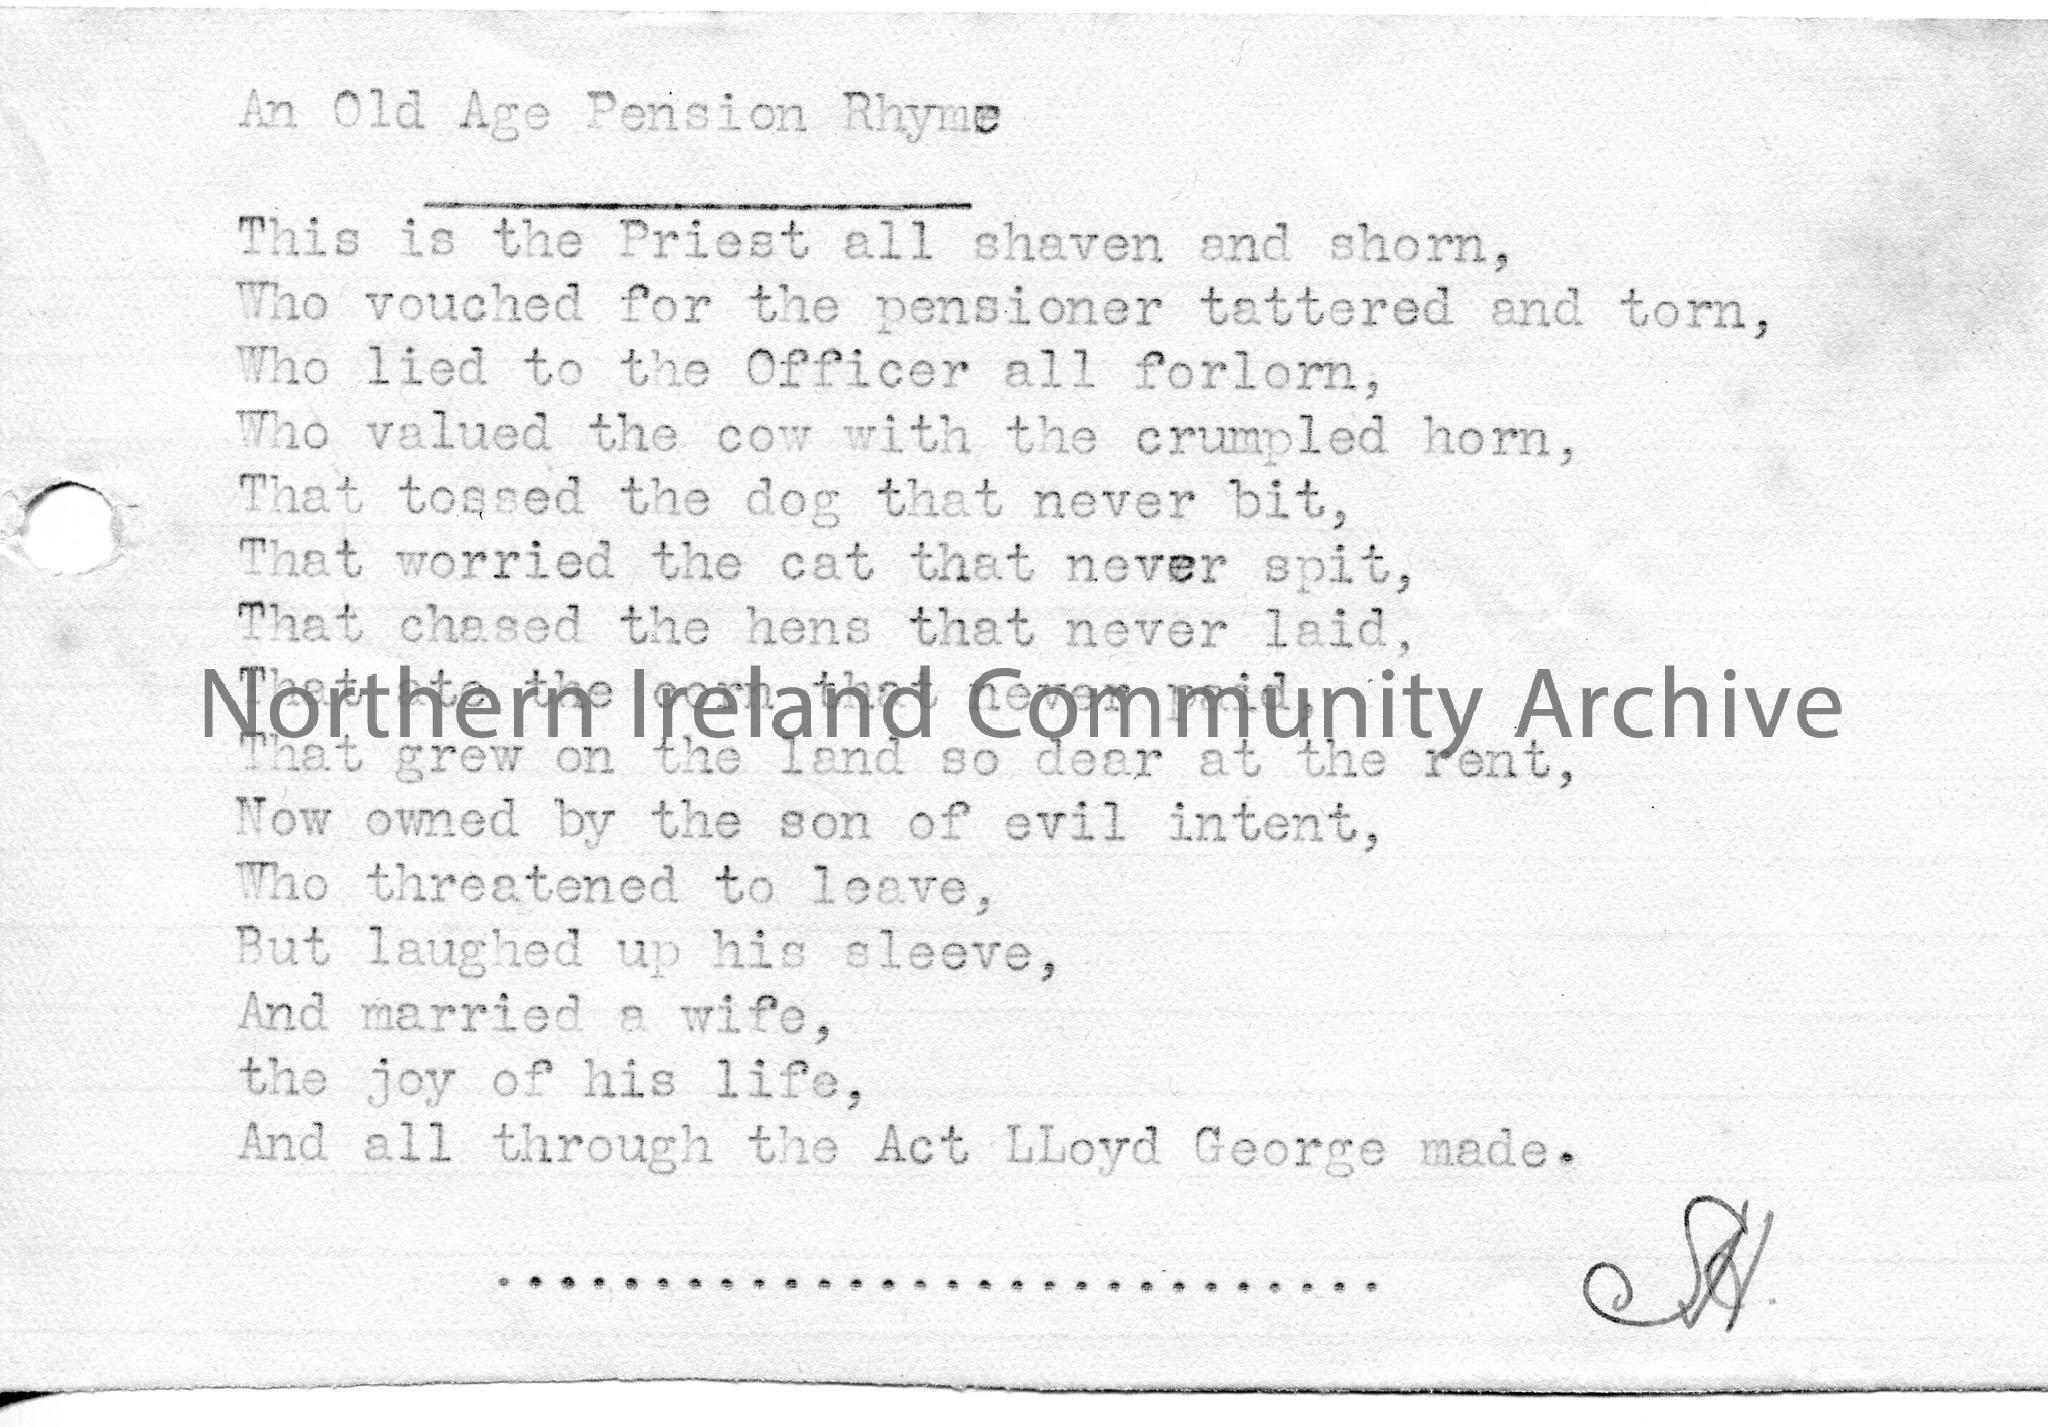 An Old Age Pension Rhyme
This is the Priest all shaven and shorn,
Who vouched for the pensioner tattered and torn,
Who lied to the Officer all forlorn,
Who valued the cow with the crumpled horn,
That tossed the dog that never bit,
That worried the cat that never spit,
That chased the hens that never laid,
That ate the corn that never paid,
Northern Ireland Community Archive
That grew on the land so dear at the rent,
Now owned by the son of evil intent,
Who threatened to leave,
But laughed up his sleeve,
And married a wife,
the joy of his life,
And all through the Act LLoyd George made.
..............................
SH.